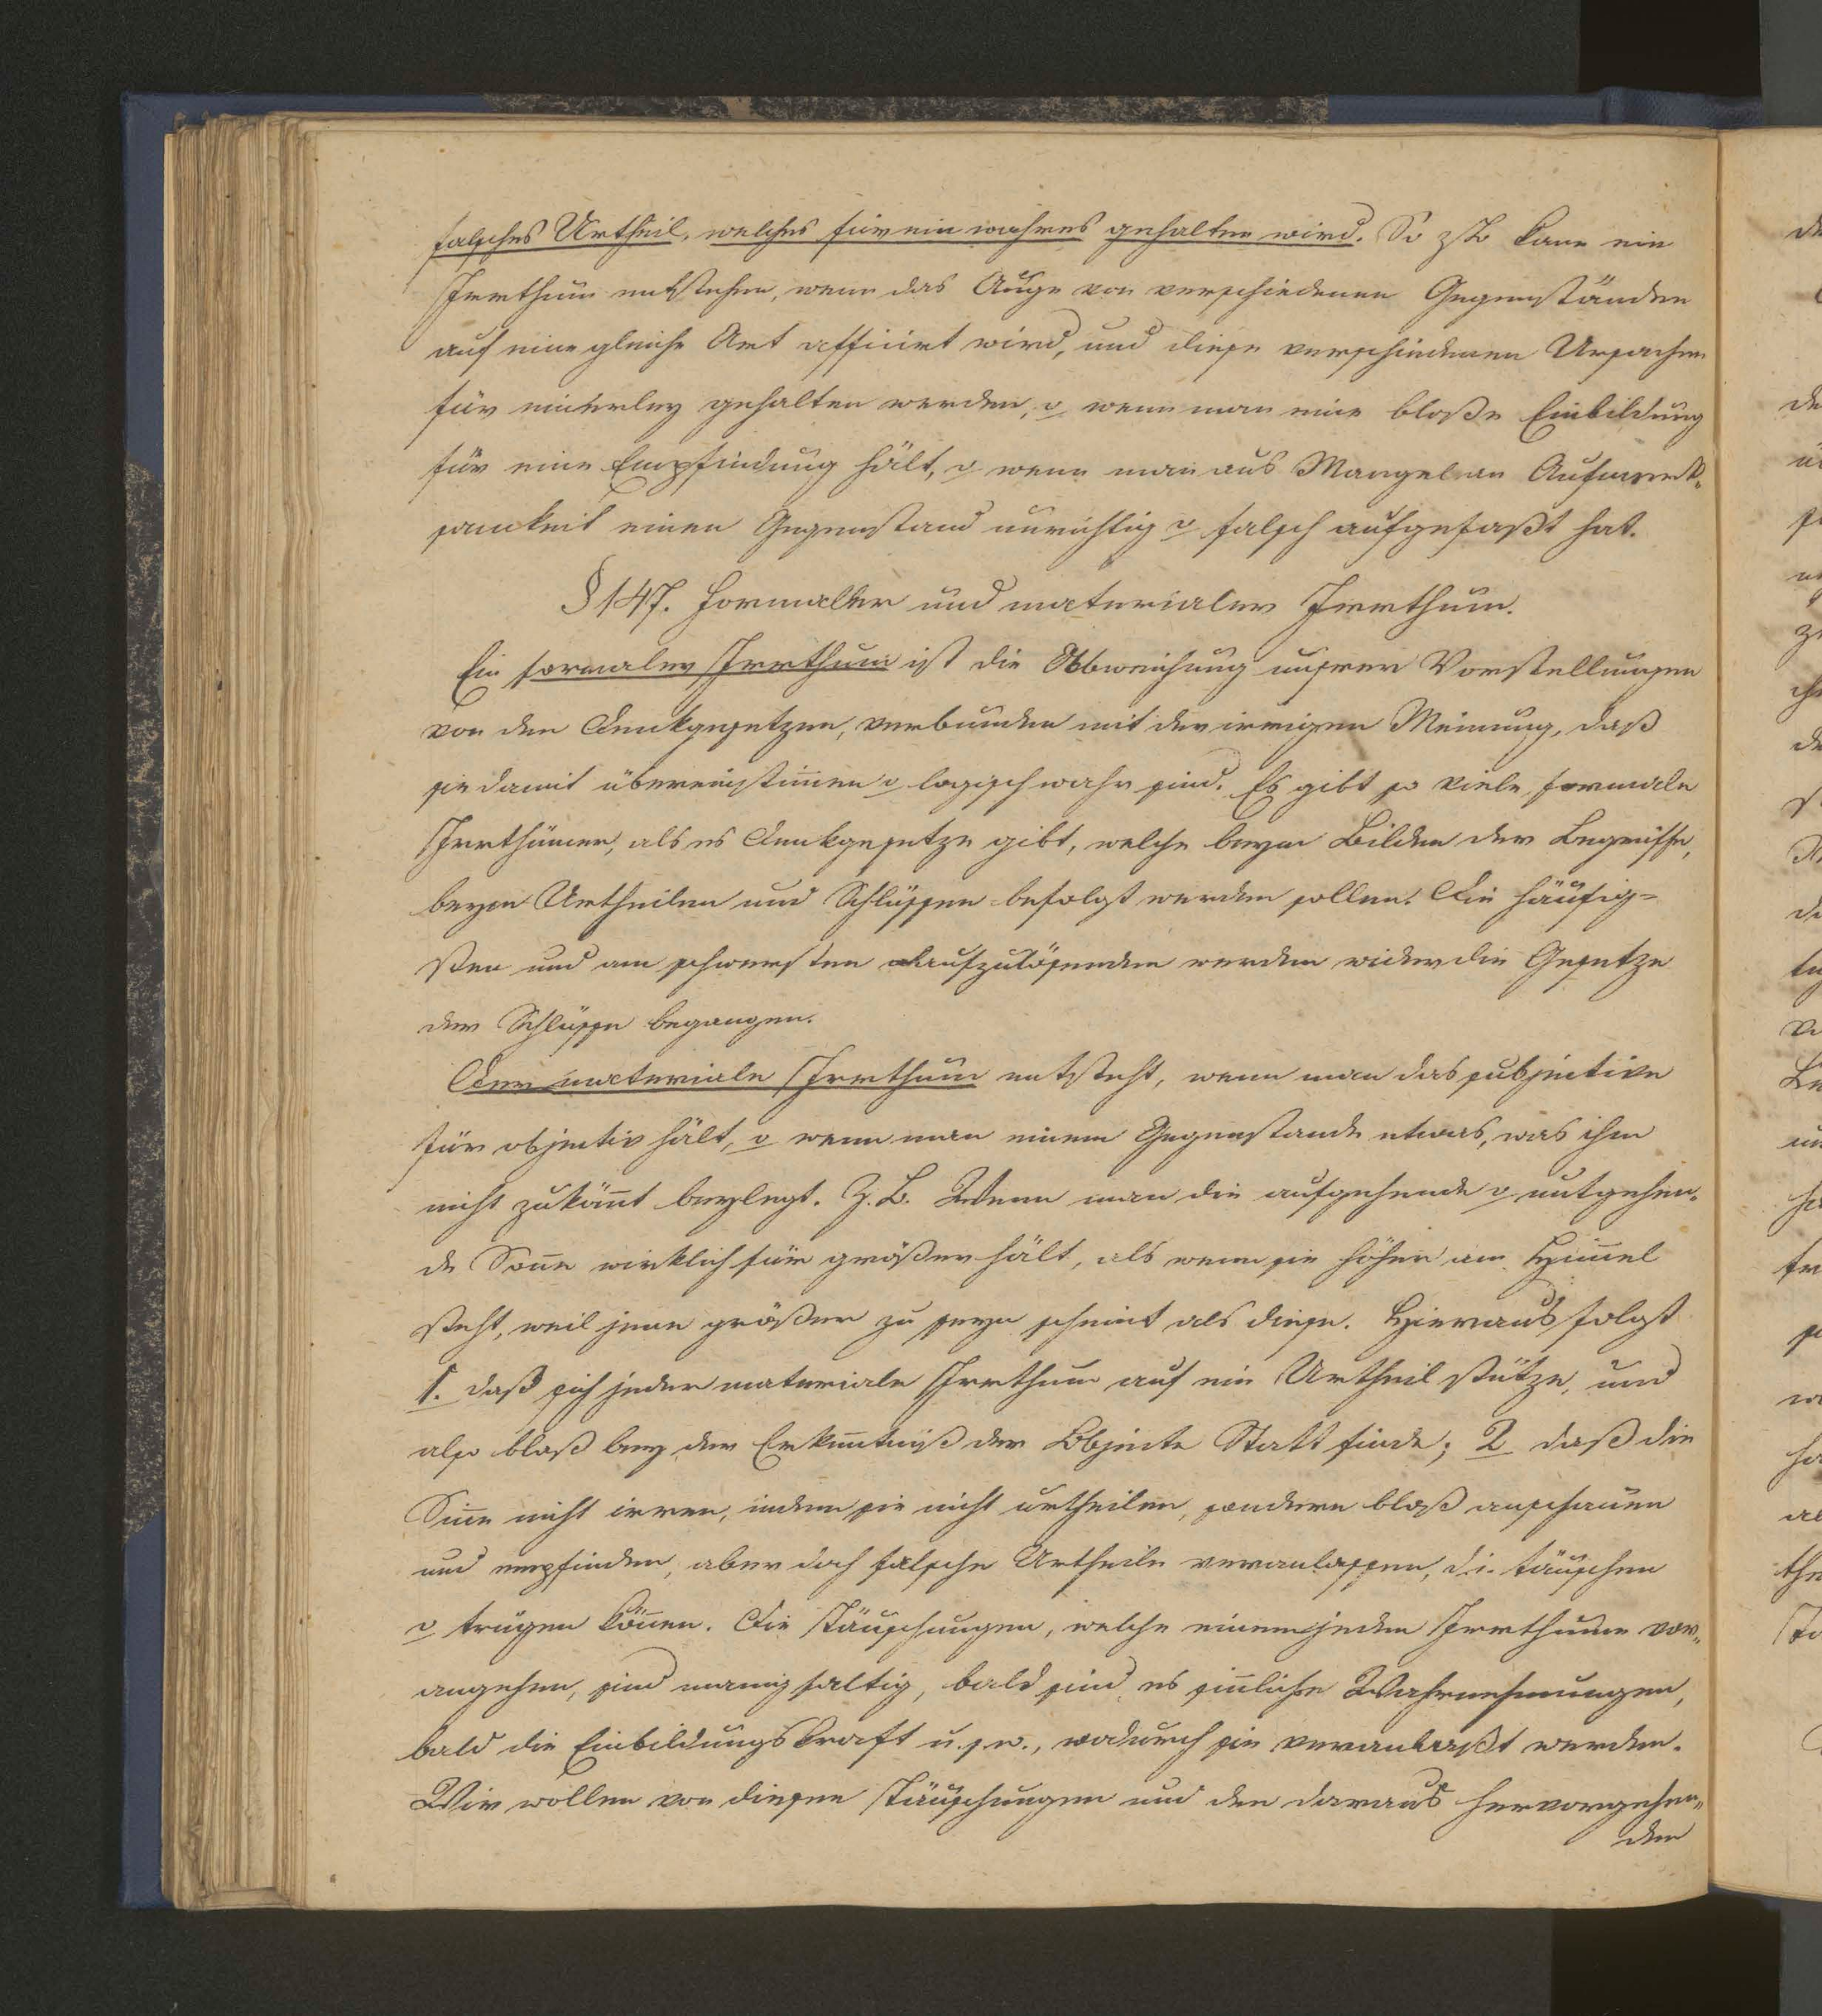 falsches Urtheil, welches für ein wahres gehalten wird. So zB kann ein
Irrthum entstehen, wenn das Auge von verschiedenen Gegenständen
auf eine gleiche Art afficirt wird, und diese verschiedenen Ursachen
für einerley gehalten werden, o wenn man eine bloße Einbildung
für eine Empfindung hält, o wenn man aus Mangel an Aufmerk-
samkeit einen Gegenstand unrichtig o falsch aufgefaßt hat.
§ 147. Formaler und materialer Irrthum.
Ein formaler Irrthum ist die Abweichung unsrer Vorstellungen
von den Denkgesetzen, verbunden mit der irrigen Meinung, daß
sie damit übereinstim̅en o logisch wahr sind. Es gibt so viele formale
Irrthümer, als es Denkgesetze gibt, welche beym Bilden der Begriffe,
beym Urtheilen und Schlüssen befolgt werden sollen. Die häufig-
sten und am schwersten aufzulösenden werden wider die Gesetze
der Schlüsse begangen.
Der materiale Irrthum entsteht, wenn man das subjective
für objectiv hält, o wenn man einem Gegenstande etwas, was ihm
nicht zuköm̅t beylegt. Z. B. Wenn man die aufgehende o untgehen-
de Son̅e wirklich für größer hält, als wenn sie höher am Him̅el
steht, weil jene größer zu seyn scheint als diese. Hieraus folgt
1. daß sich jeder materiale Irrthum auf ein Urtheil stütze, und
also bloß bey der Erken̅tniß der Objecte Statt finde; 2 daß die
Sin̅e nicht irren, indem sie nicht urtheilen, sondern bloß anschauen
und empfinden, aber doch falsche Urtheile veranlassen, d. i. täuschen
o trügen kön̅en. Die Täuschungen, welche einem jeden Irrthume vor-
angehen, sind mannigfaltig, bald sind es sin̅liche Wahrnehmungen,
bald die Einbildungskraft u. s. w., wodurch sie veranlaßt werden.
Wir wollen von diesen Täuschungen und den daraus hervorgehen-
den